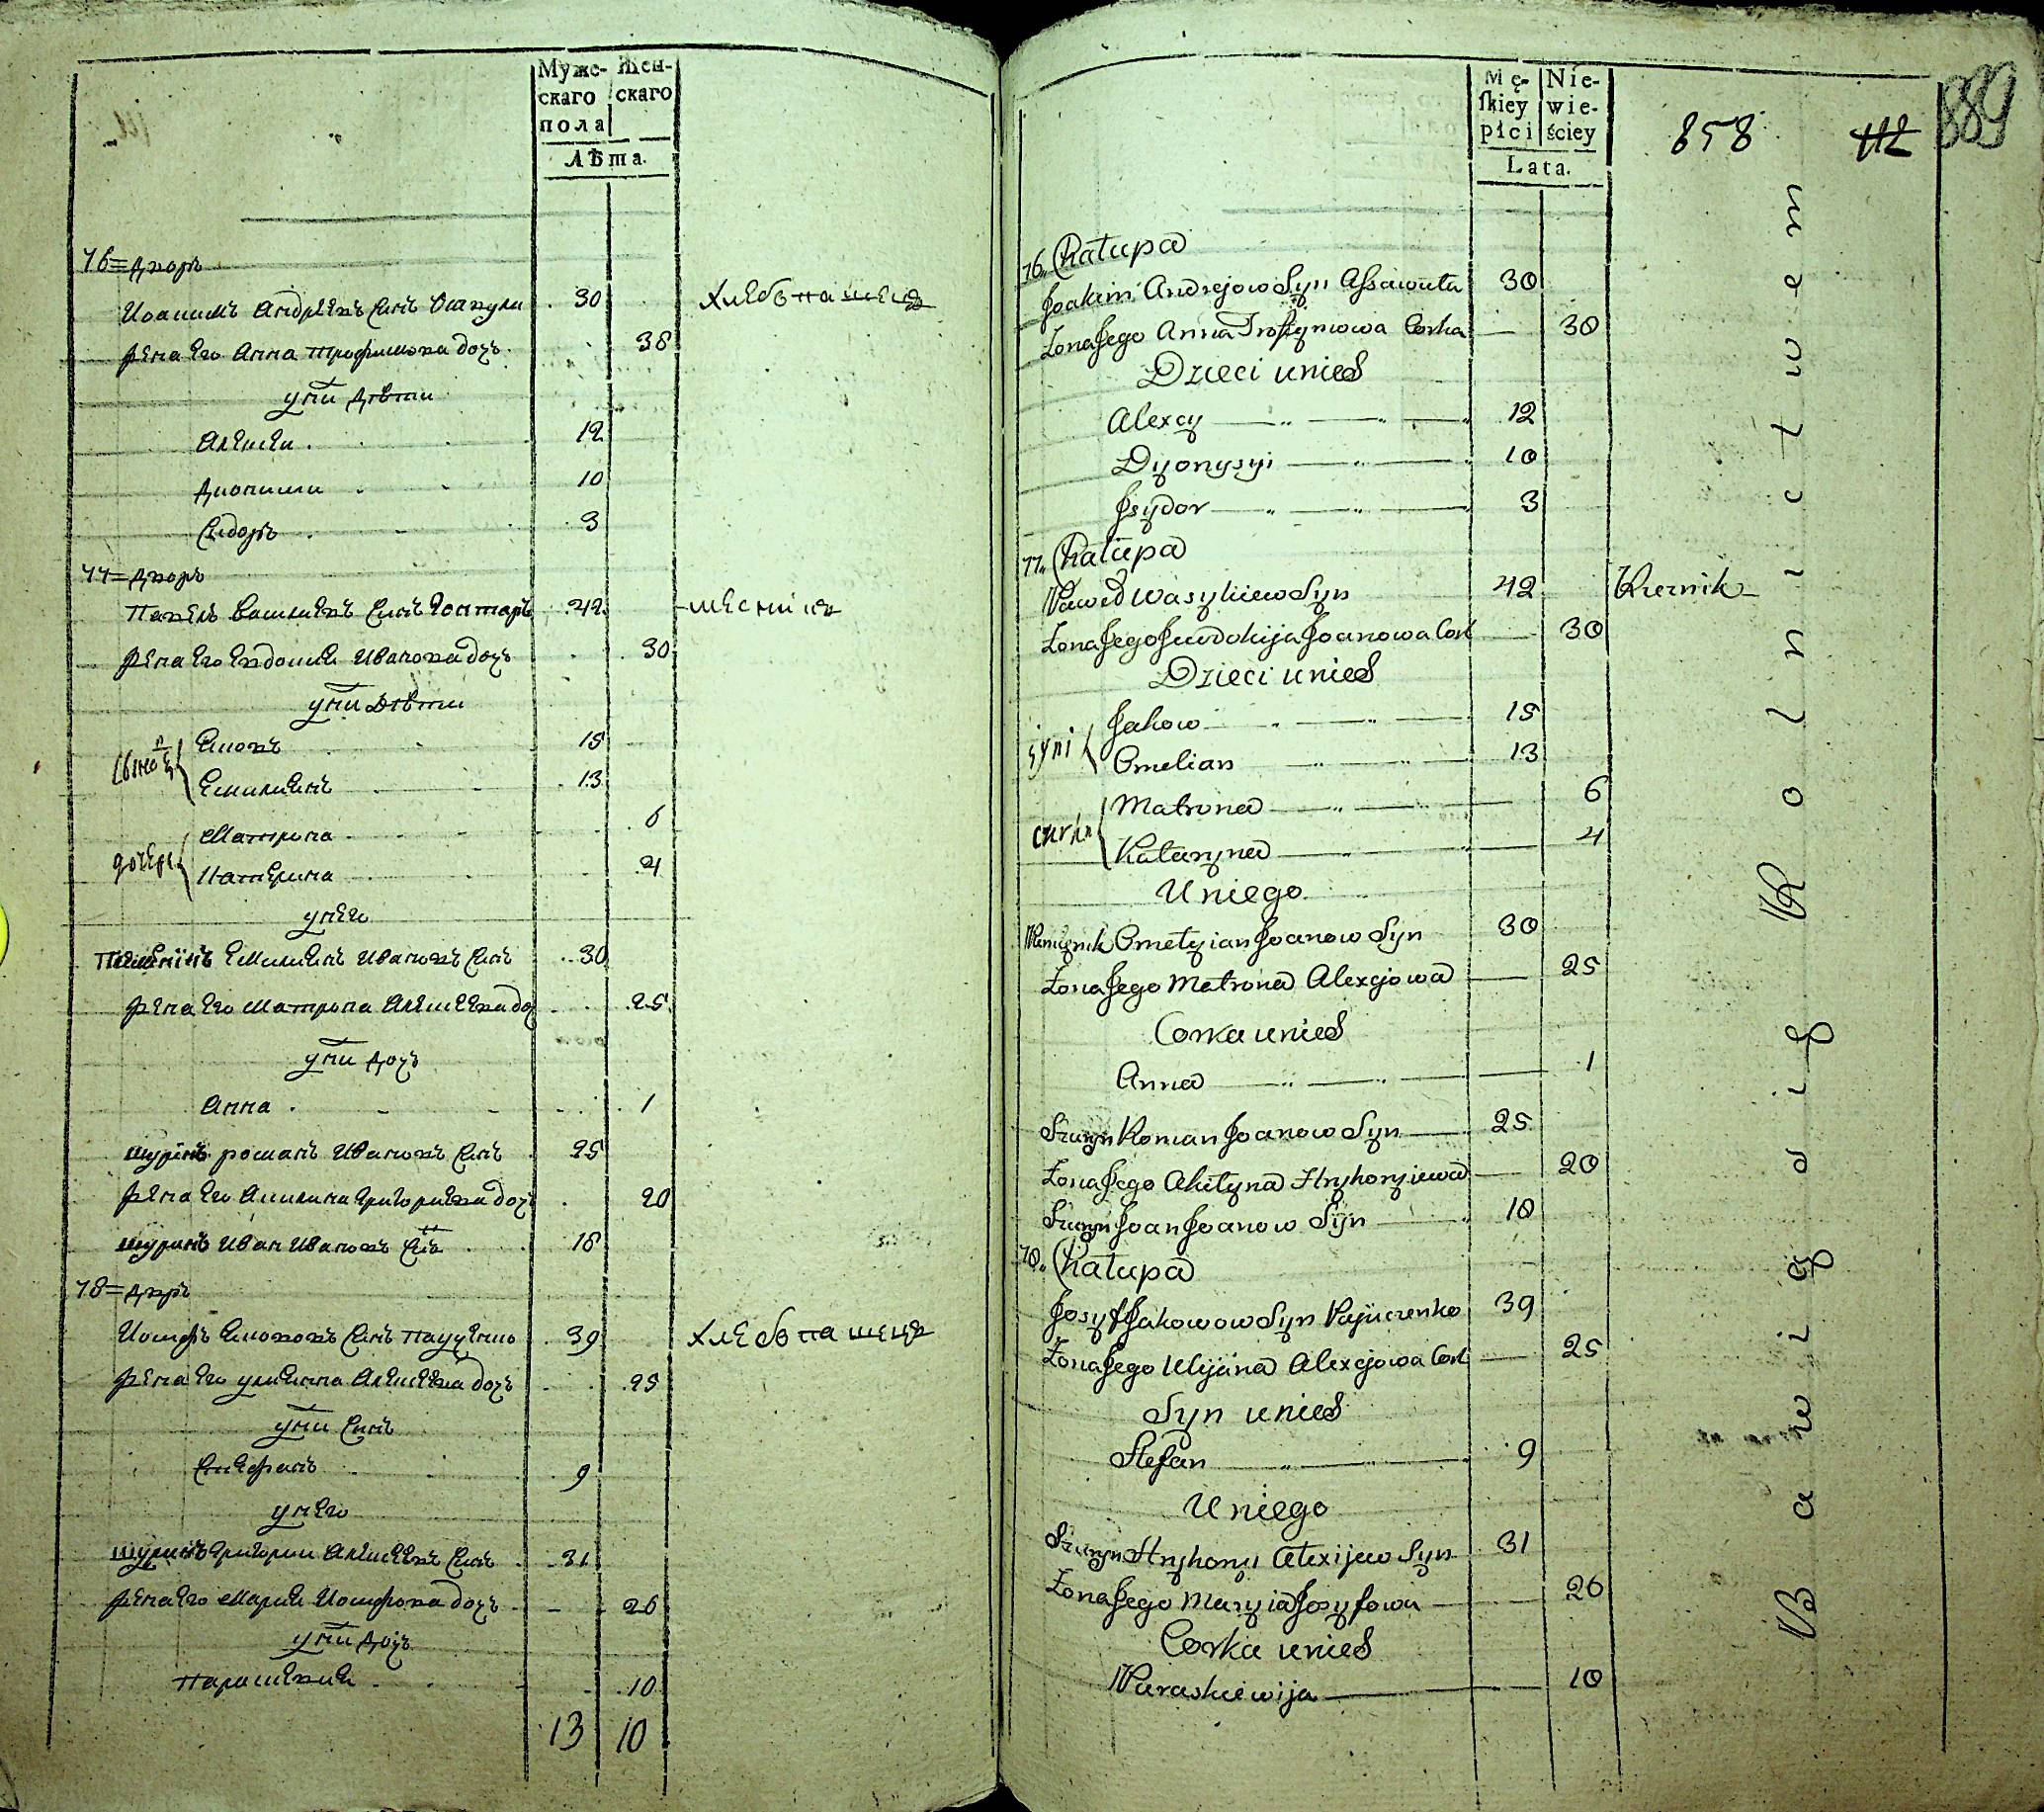 Муже- Жен-
скаго скаго
пола
Лѣта.
76= дворъ
Иоакимъ Андрѣевъ синъ 30 хлебопашецъ
жена его Анна трофимова дочъ 38
у ни дѣти
Алексеи 12
Дионисии 10
Сидоръ 3
77= дворъ
Павелъ василиевъ синъ 42
жена его евдокия Иванова дочъ 30
у ни дѣти
Еяковъ 15
Емилиянъ 13
дочери
Матрона 6
Катерина 4
у него
Емилиянъ Ивановъ синъ 30
жена его Матрона Алексеева доч 25
у ни дочъ
Анна 1
шуринъ романъ Ивановъ синъ 25
жена его Акилина григориева дочъ 20
шуринъ Иван Ивановъ синъ 18
78= дворъ
Иосифъ Еякововъ синъ 39 хлебопашецъ
жена его улиянна Алексеева дочъ 25
у ни синъ
Стефанъ 9
у него
шуринъ григории Алексеевъ синъ 31
жена его Мария Иосифова дочъ 26
у ни дочъ
Параскевия 10
13 10
Mę- Nie-
ſkiey wie-
płci ściey
Lata.
858 112 889
76. Chałupa
Joakim Andrejow Syn Assawuła 30
Żona Jego Anna Trofymowa Corka 30
Dzieci u nich
Alexey 12
Dyonysyi 10
Jsydor 3
77. Chałupa
Paweł Wasyliiew Syn 42
Żona Jego Jewdokija Joanowa Cork 30
Dzieci u nich
syni
Jakow 15
Omelian 13
curki
Matrona 6
Kataryna 4
U niego
Omelyian Joanow Syn 30
Żona Jego Matrona Alexejowa 25
Corka u nich
Anna 1
Szuryn Roman Joanow Syn 25
Żona Jego Akilyna Hryhoryiewa 20
Szuryn Joan Joanow Syn 18
78. Chałupa
Josyf Jakowow Syn 39
Żona Jego Ulyjana Alexejowa Cork 25
Syn u nich
Stefan 9
U niego
Szuryn Hryhoryi Alexijew Syn 31
Żona Jego Maryia Josyfowa 26
Corka u nich
Paraskiewija 10
Bawią się Rolnictwem